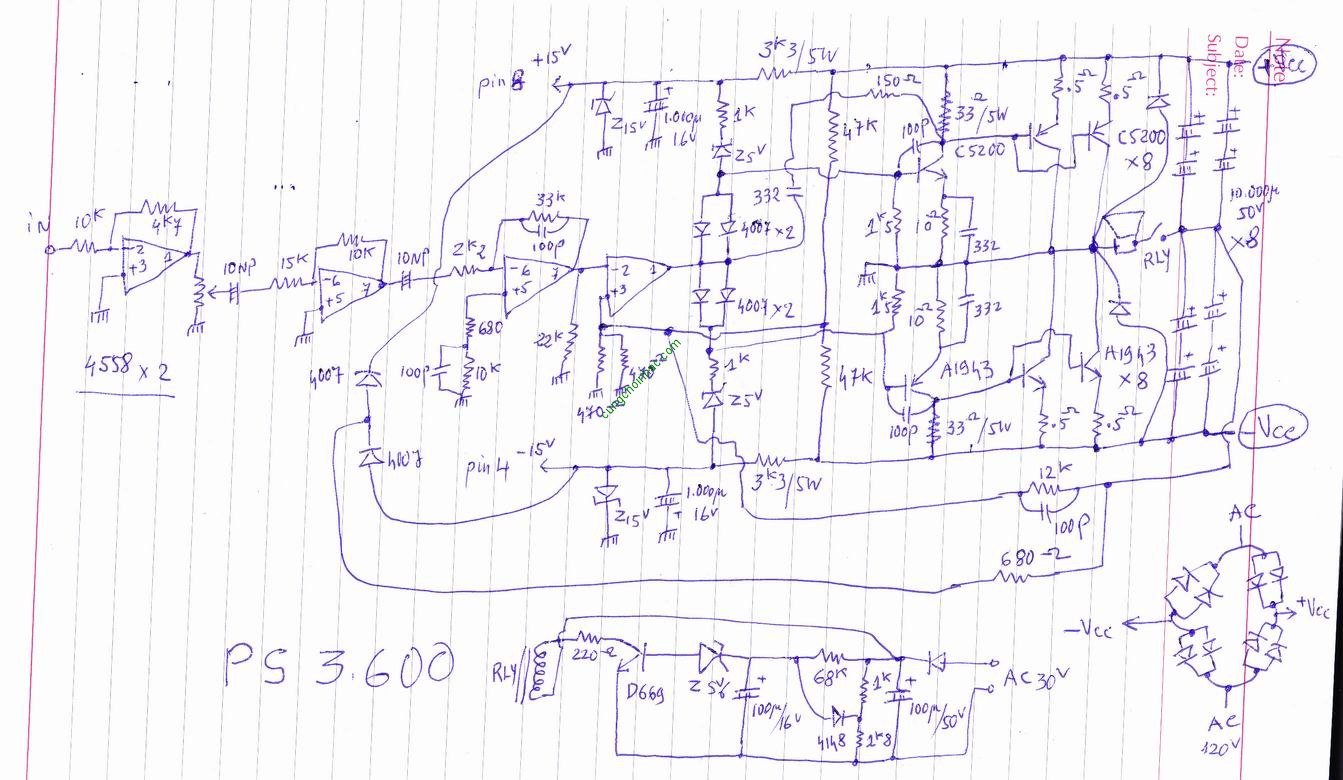 Note:
Date:
Subject:
+15V
pin 8
3K3/5W
+Vcc
Z15V
1.000µ
16V
1K
Z5V
150Ω
47K
100P
33Ω/5W
C5200
.5Ω
.5Ω
C5200
×8
332
10.000µ
50V
×8
iN
10K
4K7
-2
+3
1
10NP
15K
10K
-6
+5
7
10NP
2K2
33K
100P
-6
+5
7
-2
+3
1
4007×2
4007×2
1K5
10Ω
332
1K5
10Ω
332
RLY
4558 × 2
680
100P
10K
22K
470
4007
1K
Z5V
47K
A1943
100P
33Ω/5W
.5Ω
.5Ω
A1943
×8
-Vcc
4007
pin 4
-15V
Z15V
1.000µ
16V
3K3/5W
12K
100P
680Ω
AC
-Vcc
+Vcc
AC
120V
PS 3.600
RLY
220Ω
D669
Z5V6
100µ/16V
68K
4148
1K
1K8
100µ/50V
AC 30V